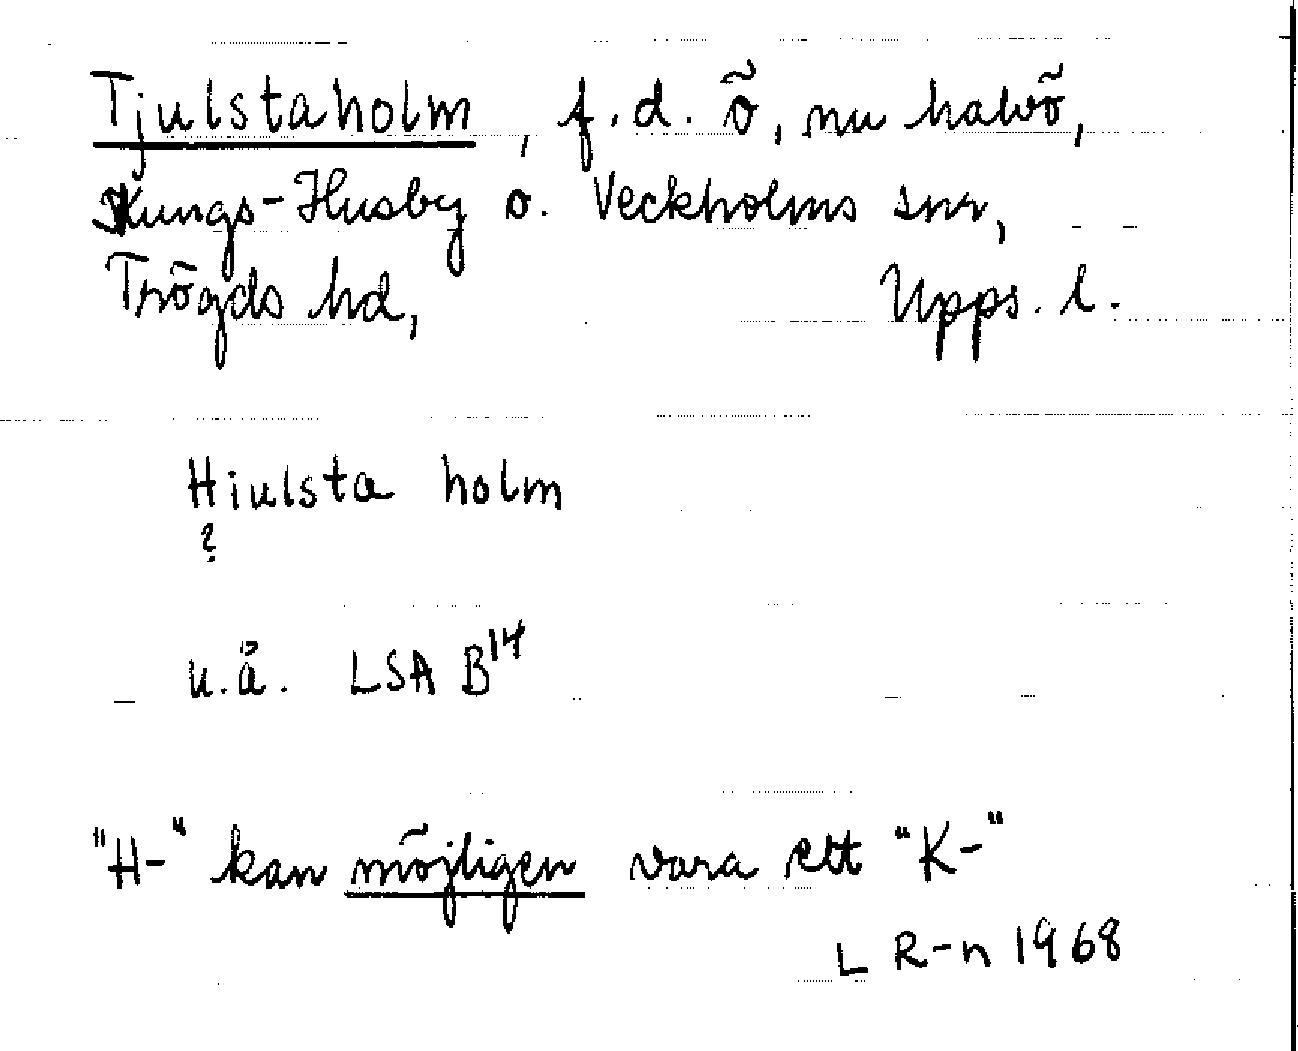 Tjulstaholm, f.d. ö, nu halvö,
Kungs-Husby o. Veckholms snr,
Trögds hd, Upps. l.
Hiulsta holm
?
u.å. LSA B14
"H-" kan möjligen vara ett "K-"
L R-n 1968